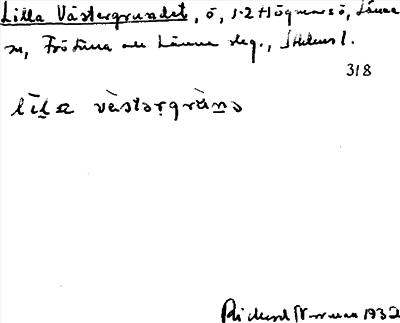 Lilla Västergrundet, ö, S.2 Högmarsö, Länna
sn, Frötuna och Länna skg., Sthlms l.
318
līl̲a vàstərgràn̲ə
Rickard Norman 1932